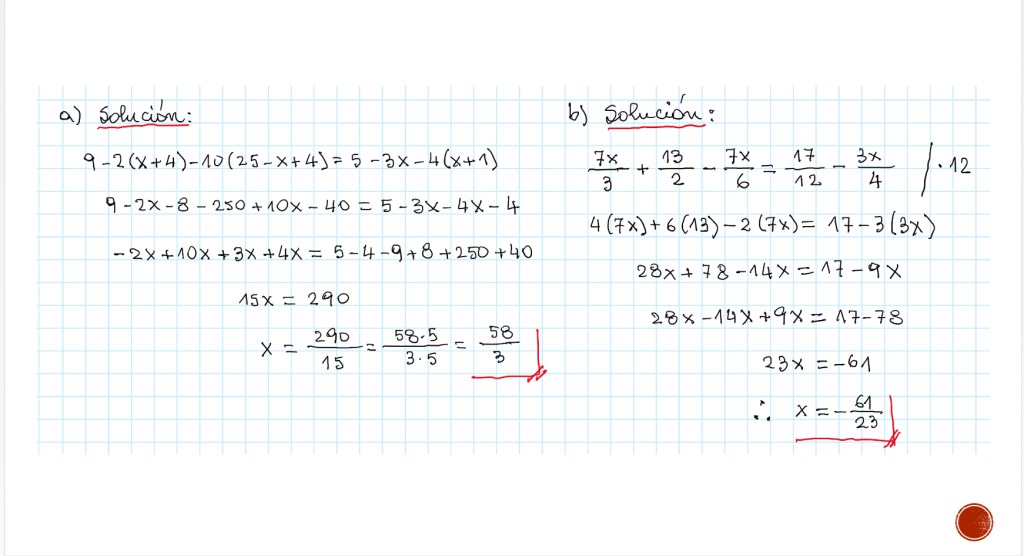 a) Solución:
9-2(x+4)-10(25-x+4)=5-3x-4(x+1)
9-2x-8-250+10x-40=5-3x-4x-4
-2x+10x+3x+4x=5-4-9+8+250+40
15x = 290
x = 290/15 = 58·5/3·5 = 58/3
b) Solución:
7x/3 + 13/2 - 7x/6 = 17/12 - 3x/4 /·12
4(7x)+6(13)-2(7x)= 17-3(3x)
28x+78-14x=17-9x
28x-14x+9x=17-78
23x = -61
∴ x = -61/23